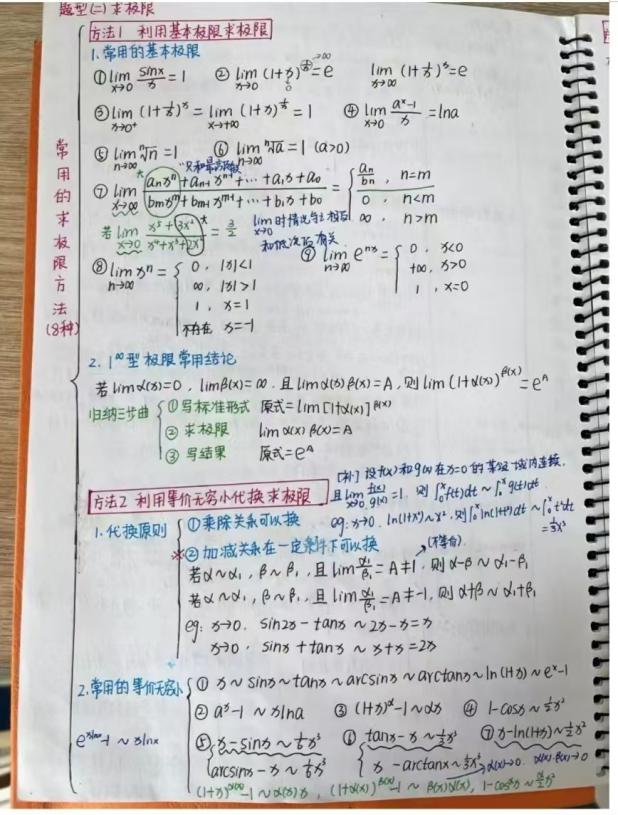 题型(二) 求极限
方法1 利用基本极限求极限
1.常用的基本极限
① lim_{x→0} sinx/x = 1  ② lim_{x→0} (1+x)^{1/x} = e  lim_{x→∞} (1+1/x)^x = e
③ lim_{x→0⁺} (1+1/x)^x = lim_{x→+∞} (1+x)^{1/x} = 1  ④ lim_{x→0} (a^x-1)/x = lna
⑤ lim_{n→∞} ⁿ√n = 1  ⑥ lim_{n→∞} ⁿ√a = 1 (a>0)
⑦ lim_{x→∞} (aₙxⁿ+aₙ₋₁xⁿ⁻¹+…+a₁x+a₀)/(bₘxᵐ+bₘ₋₁xᵐ⁻¹+…+b₁x+b₀) = { aₙ/bₙ, n=m
0, n<m
∞, n>m
lim_{x→0} 时情况与之相反
和低次后有关
⑧ lim_{n→∞} xⁿ = { 0, |x|<1
∞, |x|>1
1, x=1
不存在 x=-1
⑨ lim_{n→∞} e^{nx} = { 0, x<0
+∞, x>0
1, x=0
常用的求极限方法(8种)
2. 1^∞型极限常用结论
若limα(x)=0, limβ(x)=∞. 且limα(x)β(x)=A, 则lim(1+α(x))^{β(x)}=e^A
归纳三步曲 ①写标准形式 原式=lim[1+α(x)]^{β(x)}
② 求极限 limα(x)β(x)=A
③ 写结果 原式=e^A
方法2 利用等价无穷小代换求极限
[补] 设f(x)和g(x)在x=0的某邻域内连续.
且lim_{x→0} f(x)/g(x)=1. 则∫₀ˣf(t)dt~∫₀ˣg(t)dt.
eg: x→0. ln(1+x²)~x². 则∫₀ˣln(1+t²)dt~∫₀ˣt²dt
=1/3x³
1.代换原则 ①乘除关系可以换
※②加减关系在一定条件下可以换
(不等价)
若α~α₁, β~β₁, 且lim α₁/β₁=A≠1, 则α-β~α₁-β₁
若α~α₁, β~β₁, 且lim α₁/β₁=A≠-1, 则α+β~α₁+β₁
eg: x→0. sin2x-tanx~2x-x=x
x→0. sinx+tanx~x+x=2x
2.常用的等价无穷小 ① x~sinx~tanx~arcsinx~arctanx~ln(1+x)~e^x-1
② a^x-1~xlna  ③ (1+x)^α-1~αx  ④ 1-cosx~1/2x²
e^{xlnx}-1~xlnx
⑤ x-sinx~1/6x³  ⑥ tanx-x~1/3x³  ⑦ x-ln(1+x)~1/2x²
arcsinx-x~1/6x³  x-arctanx~1/3x³  α(x)→0. α(x)·β(x)→0
(1+x)^{α(x)}-1~α(x)x, (1+α(x))^{β(x)}-1~β(x)α(x), 1-cos^αx~α/2x²